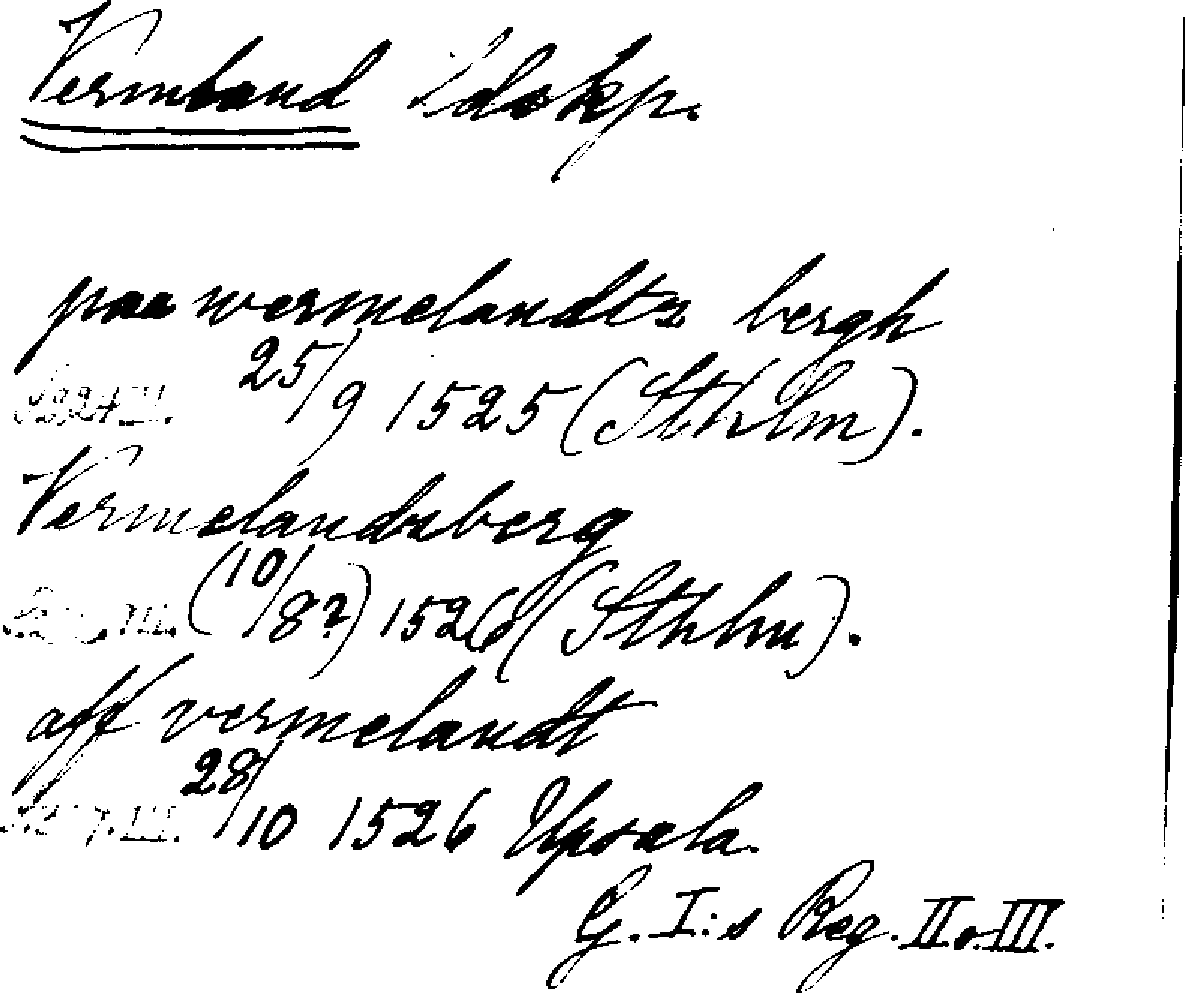 Vermland Ldskp.
paa wermelandtz bergh
25/9 1525 (Sthlm).
Vermelandsberg
(10/8?) 1526 (Sthlm).
aff vermelandt
28/10 1526 Upsala.
G. I:s Reg. II o. III.